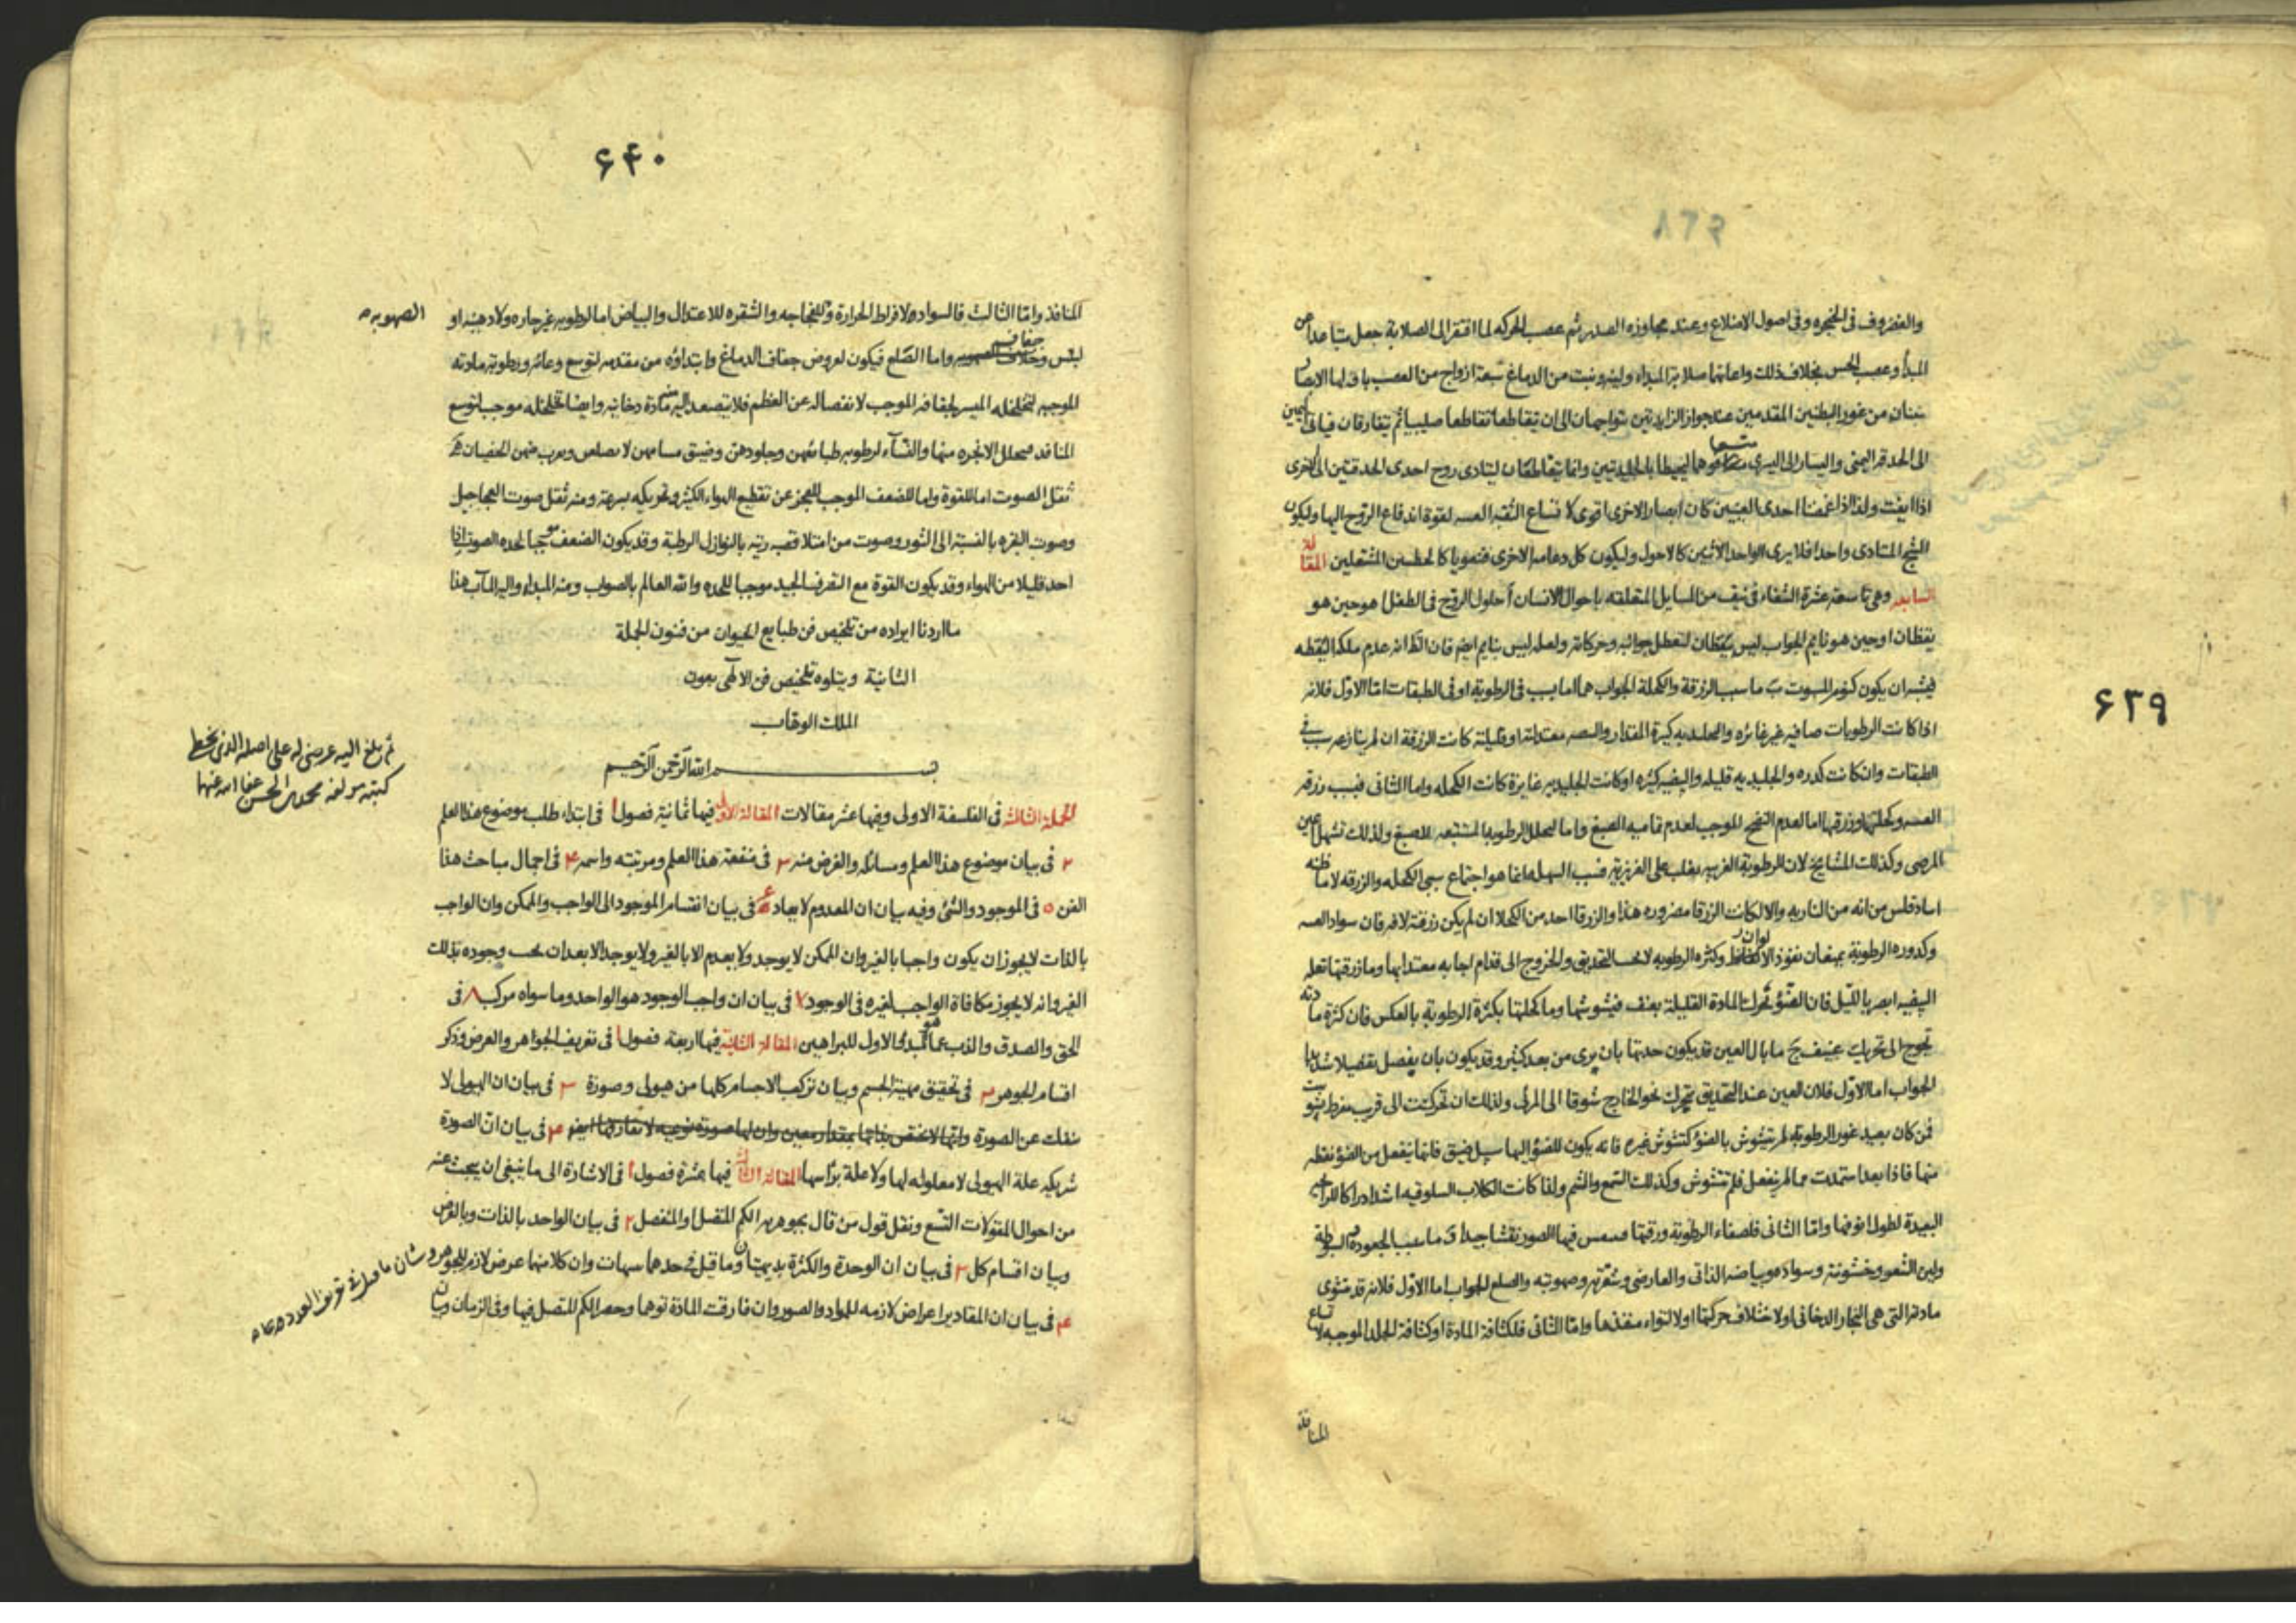 ٦٣٩
والغضروف فى الحنجره وفى اصول الاضلاع وعند مجاوزه الصدر ثم عصب الحركه لما افتقر الى الصلابة جعل متباعدا عن
المبدأ وعصب الحس بخلاف ذلك واعانهما صلابة المبداء ولينه ونبت من الدماغ سبعة ازواج من العصب
من غور البطنين المقدمين عند جواز الزايدتين يتواجهان الى ان يتقاطعا تقاطعا صليبيا ثم يتفارقان
الى الحدقه اليمنى واليسار الى اليسرى ليحيطا بالجليديتين وانما يتقاطعان ليتادى روح احدى الحدقتين الى الاخرى
ولذا اذا غمضنا احدى العينين كان ابصار الاخرى اقوى لاتساع الثقبه لقوة اندفاع الروح اليها وليكون
الشبح المتادى واحدا فلا يرى الواحد لاثنين كالاحول وليكون كل دعامه الاخرى المقالة
السابعه وهى تاسعة عشرة الشفاء فى نيف من المسايل المتعلقه باحوال الانسان ا حلول الروح فى الطفل اهو حين هو
يقظان او حين هو نايم الجواب ليس بيقظان لتعطل حواسه وحركاته ولعله ليس بنايم ايضا فان الظ انه عدم ملكه اليقظه
فيشبه ان يكون كنوم المسبوت ب ما سبب الزرقة والكحلة الجواب هما اما بسبب فى الرطوبة او فى الطبقات اما الاول فلانه
اذا كانت الرطوبات صافيه غير غائره والجليديه كبيرة المقدار معتدلة او قليلة كانت الزرقة ان لم ينازعه سبب فى
الطبقات وان كانت كدره والجليديه قليله والبيضيه كثيره او كانت الجليديه غايرة كانت الكحله واما الثانى فسبب زرقه
وكحلتها وزرقها اما لعدم النضج الموجب لعدم تمامية الصبغ واما لتحلل الرطوبة المستتبعه للصبغ ولذلك تشهل عين
المرضى وكذلك المشايخ لان الرطوبة الغريبه يغلب على الغريزية انما هو اجتماع سببى الكحله والزرقه لا ما ظنه
من انه من الناريه والا لكانت الزرقا مضروره هذا والزرقا احد من الكحلا ان لم يكن زرقته لافه فان سواد
وكدوره الرطوبة يمنعان نفوذ وكثره الرطوبه التحديق والخروج الى قدام
ابصر بالليل فان الضؤ تحرك المادة القليلة بعنف فيشوشها وما كحلتها بكثرة الرطوبة بالعكس فان كثرة مادته
تحوج الى تحريك عنيف ج ما بال العين قد يكون حدتها بان يرى من بعد كثير وقد يكون بان يفصل تفصيلا شديدا
الجواب اما الاول فلان العين عند التحديق تتحرك نحو الخارج شوقا الى المرئى ولذلك ان تحركت الى قريب مفرط
فمن كان بعيد غور الرطوبة لم يتشوش بالضؤ كتشوش غيره فانه يكون للضؤ اليها سبيل ضيق فانما ينفعل من الضؤ نقطه
منها فاذا بعد استمدت مما لم ينفعل فلم تتشوش وكذلك السمع والشم ولذا كانت الكلاب السلوقيه اشد ادراكا للرايحه
البعيدة لطول انوفها واما الثانى فلصفاء الرطوبة ورقتها فيها الصور نقشا جيدا د ما سبب الجعودة والسبوطة
ولين الشعر وخشونته وسواده وبياضه الذاتى والعارضى وشقرته وصهوبته والصلع الجواب اما الاول فلانه قد تلتوى
مادته التى هى البخار الدخانى او لاختلاف حركتها او لالتواء منفذها واما الثانى فلكثافة المادة او كثافة الجلد الموجبه لاتساع
المنافذ
٦٤٠
المنافذ واما الثالث فالسواد لافراط الحرارة وللفجاجه والشقره للاعتدال والبياض اما لرطوبه غير حاره ولا دهنيه او
الصهوبه
ليبس وجفاف واما الصلع فيكون لعروض جفاف الدماغ وابتداؤه من مقدمه لتوسع وعائه ورطوبة مادته
الموجبه لتخلخله الميسر لجفافه الموجب لانفصاله عن العظم فلا يتصعد اليه منه مادة دخانيه وايضا تخلخله موجب لتوسع
المنافذ فيتحلل الابخره منها والنساء لرطوبه طبائعهن وجلودهن وضيق مسامهن لا يصلعن ويقرب منهن الخصيان ه
ثقل الصوت اما للقوة واما للضعف الموجب للعجز عن تقطيع الهواء الكثير وتحريكه بسرعة ومنه ثقل صوت العجاجيل
وصوت البقره بالنسبة الى الثور وصوت من امتلا قصبه ريته بالنوازل الرطبة وقد يكون الضعف موجبا لحده الصوت اذا
احد قليلا من الهواء وقد يكون القوة مع التصرف الجيد موجبا للحده والله العالم بالصواب ومنه المبداء واليه المآب هذا
ما اردنا ايراده من تلخيص فن طبايع الحيوان من فنون الجملة
الثانية ويتلوه تلخيص فن الالهى بعون
الملك الوهاب
ثم بلغ اليه عرضى له على اصله الذى بخط
كتبه مولفه محمد بن الحسن عفا الله عنهما
بسم الله الرحمن الرحيم
الجملة الثالثة فى الفلسفة الاولى وفيها عشر مقالات المقالة الاولى فيها ثمانية فصول ا فى ابتداء طلب موضوع هذا العلم
٢ فى بيان موضوع هذا العلم ومسائله والغرض منه ٣ فى منفعة هذا العلم ومرتبته واسمه ۴ فى اجمال مباحث هذا
الفن ٥ فى الموجود والشئ وفيه بيان ان المعدوم لا يعاد ع فى بيان انقسام الموجود الى الواجب والممكن وان الواجب
بالذات لا يجوز ان يكون واجبا بالغير وان الممكن لا يوجد ولا يعدم الا بالغير ولا يوجد الا بعد ان يجب وجوده بذلك
الغير وانه لا يجوز مكافاة الواجب لغيره فى الوجود ٧ فى بيان ان واجب الوجود هو الواحد وما سواه مركب ٨ فى
الحق والصدق والذب عما هو المبدأ الاول للبراهين المقالة الثانية فيها اربعة فصول ا فى تعريف الجواهر والعرض وذكر
اقسام الجوهر ٢ فى تحقيق مهية الجسم وبيان تركب الاجسام كلها من هيولى وصورة ٣ فى بيان ان الهيولى لا
تنفك عن الصورة وانها لا تختص بذاتها بمقدار معين وان لها صورة نوعيه لا تفارقها ايضا ۴ فى بيان ان الصورة
شريكة علة الهيولى لا معلوله لها ولا علة برأسها المقالة الثالثة فيها عشرة فصول ا فى الاشارة الى ما ينبغى ان يبحث عنه
من احوال المقولات التسع ونقل قول من قال بجوهرية الكم المتصل او المنفصل ٢ فى بيان الواحد بالذات وبالعرض
وبيان اقسام كل ٣ فى بيان ان الوحدة والكثرة بديهيتان وما قيل فى حدهما وان كلا منهما عرض لازم للجوهر وشان ما قيل فى تعريف العدد
۴ فى بيان ان المقادير اعراض لازمه للمواد والصور وان فارقت المادة توهما وحصر الكم المتصل فيها وفى الزمان وبيان